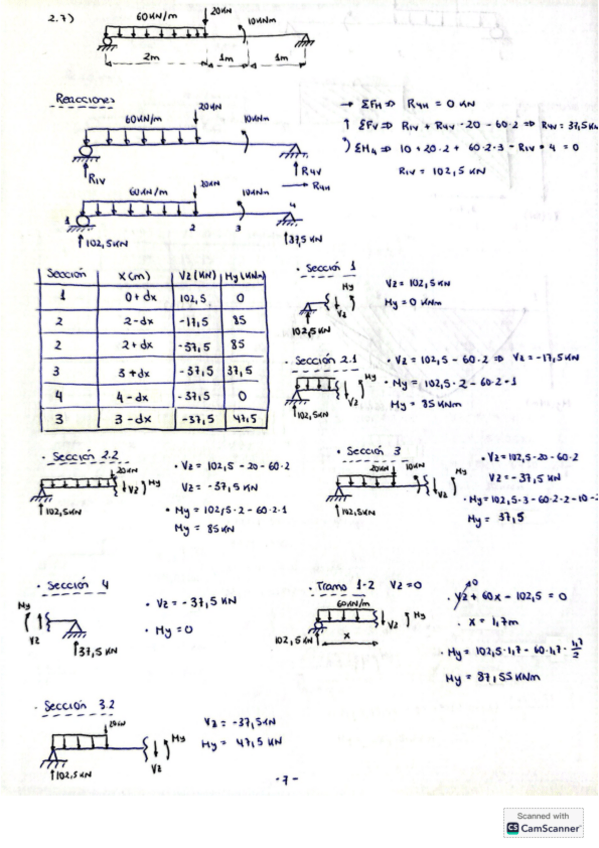 2.7)
60KN/m
20KN
10KNm
2m
1m
1m
Reacciones
60KN/m
20KN
10KNm
R1V
R4V
R4H
→ ΣFH => R4H = 0 KN
↑ ΣFV => R1V + R4V - 20 - 60·2 => R4V = 37,5K
ΣM4 => 10 + 20·2 + 60·2·3 - R1V · 4 = 0
R1V = 102,5 KN
60KN/m
20KN
10KNm
1
2
3
4
↑102,5KN
↑37,5KN
Sección X(m) Vz(KN) My(KNm)
1 0+dx 102,5 0
2 2-dx -17,5 85
2 2+dx -37,5 85
3 3+dx -37,5 37,5
4 4-dx -37,5 0
3 3-dx -37,5 47,5
· Sección 1
My
Vz
102,5KN
Vz = 102,5KN
My = 0 KNm
· Sección 2.1
My
Vz
↑102,5KN
· Vz = 102,5 - 60·2 => Vz = -17,5KN
· My = 102,5·2 - 60·2·1
My = 85KNm
· Sección 2.2
20KN
Vz
My
↑102,5KN
· Vz = 102,5 - 20 - 60·2
Vz = -37,5 KN
· My = 102,5·2 - 60·2·1
My = 85KN
· Sección 3
20KN
10KN
My
Vz
↑102,5KN
· Vz = 102,5 - 20 - 60·2
Vz = -37,5KN
· My = 102,5·3 - 60·2·2 - 10 - 2
My = 37,5
· Sección 4
My
Vz
↑37,5KN
· Vz = -37,5 KN
· My = 0
· Tramo 1-2 Vz = 0
60KN/m
My
Vz
102,5KN
x
0
· Vz + 60x - 102,5 = 0
· x = 1,7m
· My = 102,5·1,7 - 60·1,7·1,7/2
My = 87,55KNm
· Sección 3.2
20KN
My
Vz
↑102,5KN
Vz = -37,5KN
My = 47,5 KN
-7-
Scanned with
CS CamScanner